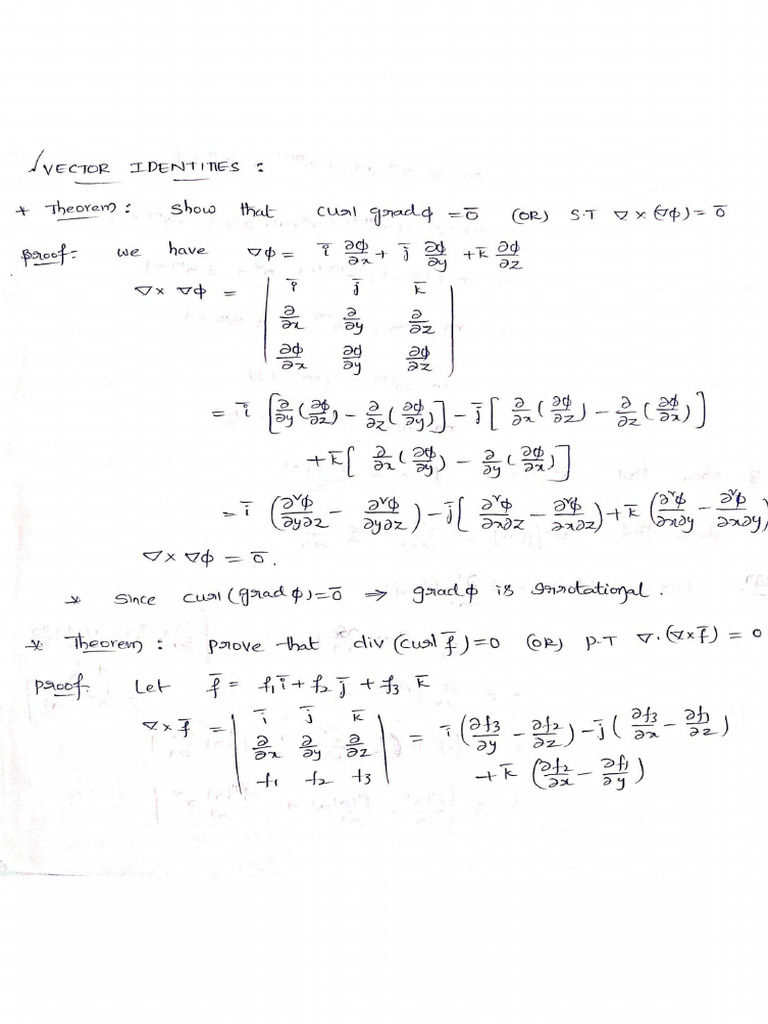 √ VECTOR IDENTITIES :
* Theorem : Show that curl grad φ = 0̄ (OR) S.T ∇ × (∇φ) = 0̄
Proof: we have ∇φ = ī ∂φ/∂x + j̄ ∂φ/∂y + k̄ ∂φ/∂z
∇× ∇φ = | ī j̄ k̄ |
| ∂/∂x ∂/∂y ∂/∂z |
| ∂φ/∂x ∂φ/∂y ∂φ/∂z |
= ī [ ∂/∂y (∂φ/∂z) − ∂/∂z (∂φ/∂y) ] − j̄ [ ∂/∂x (∂φ/∂z) − ∂/∂z (∂φ/∂x) ]
+ k̄ [ ∂/∂x (∂φ/∂y) − ∂/∂y (∂φ/∂x) ]
= ī ( ∂²φ/∂y∂z − ∂²φ/∂y∂z ) − j̄ [ ∂²φ/∂x∂z − ∂²φ/∂x∂z ) + k̄ ( ∂²φ/∂x∂y − ∂²φ/∂x∂y )
∇× ∇φ = 0̄.
* Since curl (grad φ) = 0̄ ⇒ grad φ is irrotational.
* Theorem : prove that div (curl f̄) = 0 (OR) P.T ∇. (∇× f̄) = 0
Proof. Let f̄ = f₁ ī + f₂ j̄ + f₃ k̄
∇× f̄ = | ī j̄ k̄ | = ī ( ∂f₃/∂y − ∂f₂/∂z ) − j̄ ( ∂f₃/∂x − ∂f₁/∂z )
| ∂/∂x ∂/∂y ∂/∂z |
| f₁ f₂ f₃ | + k̄ ( ∂f₂/∂x − ∂f₁/∂y )